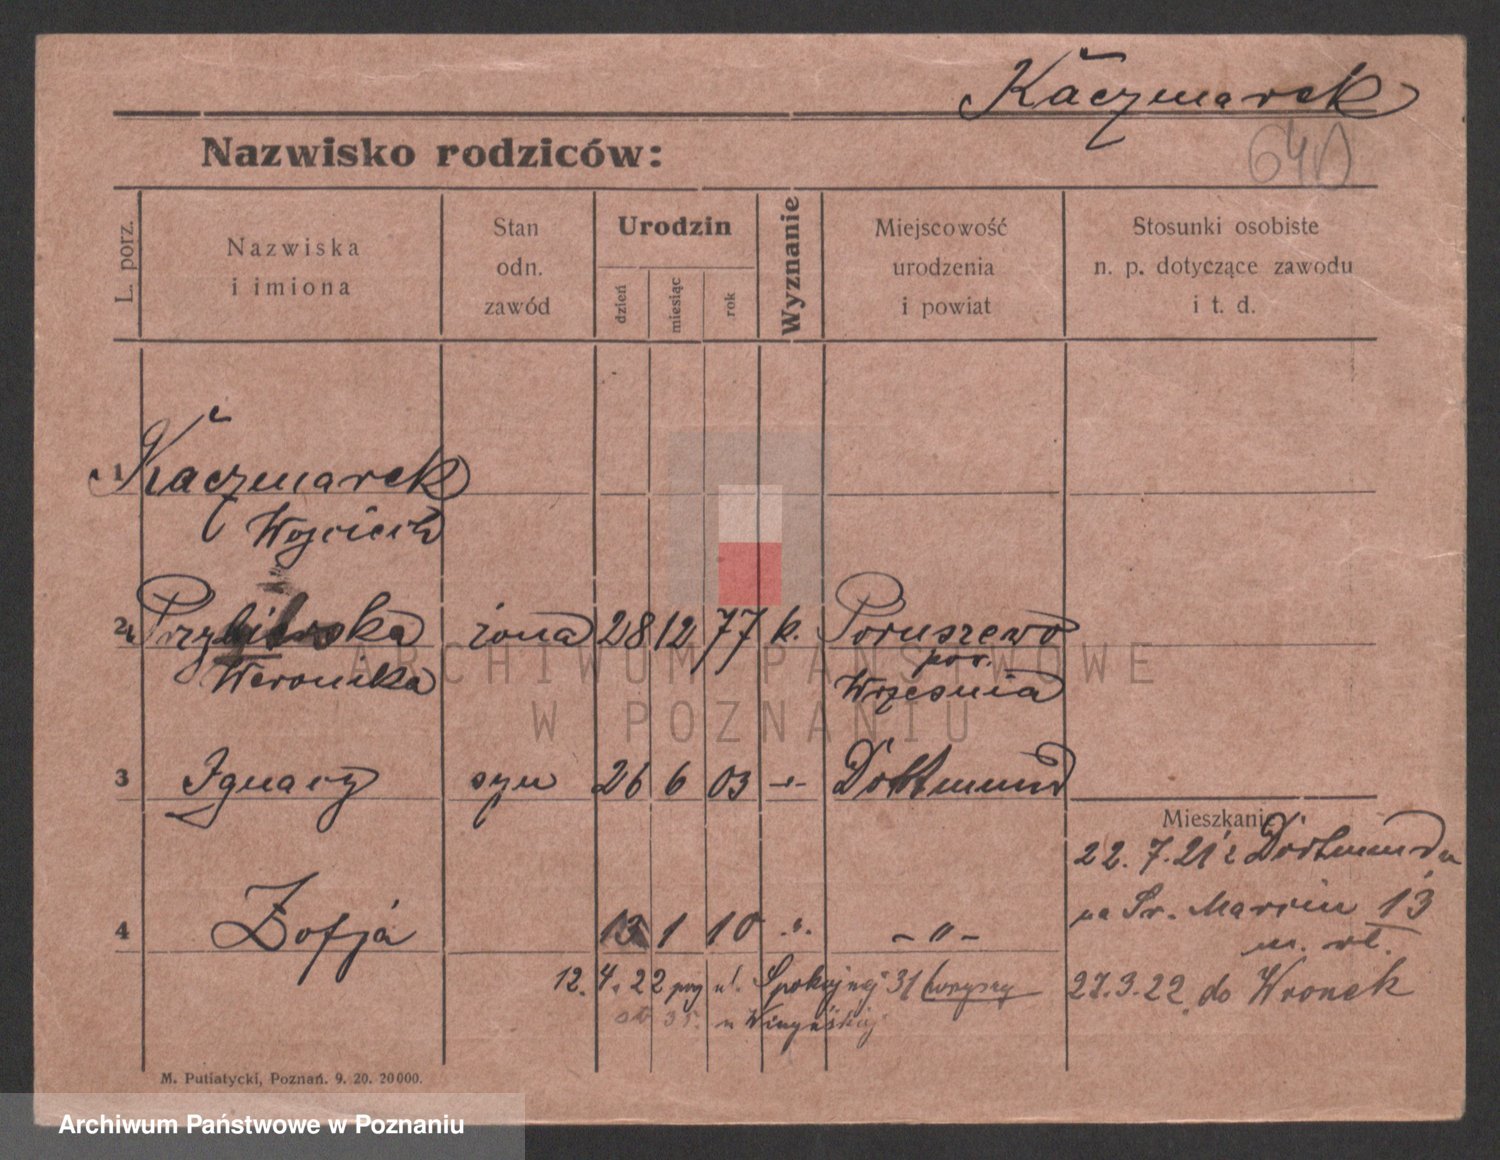 Kaczmarek
Nazwisko rodziców:
L. porz.
Nazwiska
i imiona
Stan
odn.
zawód
Urodzin
dzień
miesiąc
rok
Wyznanie
Miejscowość
urodzenia
i powiat
Stosunki osobiste
n. p. dotyczące zawodu
i t. d.
1 Kaczmarek
Wojciech
2 żona 28 12 77 k. Poruszewo
Weronika pow.
Września
3 Ignacy syn 26 6 03 -"- Dortmund
Mieszkanie
22. 7. 21 z Dortmundu
na Św. Marcin 13
4 Zofja 13 1 10 " - " -
12. 4. 22 przy ul. Spokojnej 31
27. 3. 22 do Wronek
ARCHIWUM PAŃSTWOWE
W POZNANIU
M. Putiatycki, Poznań. 9. 20. 20000.
Archiwum Państwowe w Poznaniu